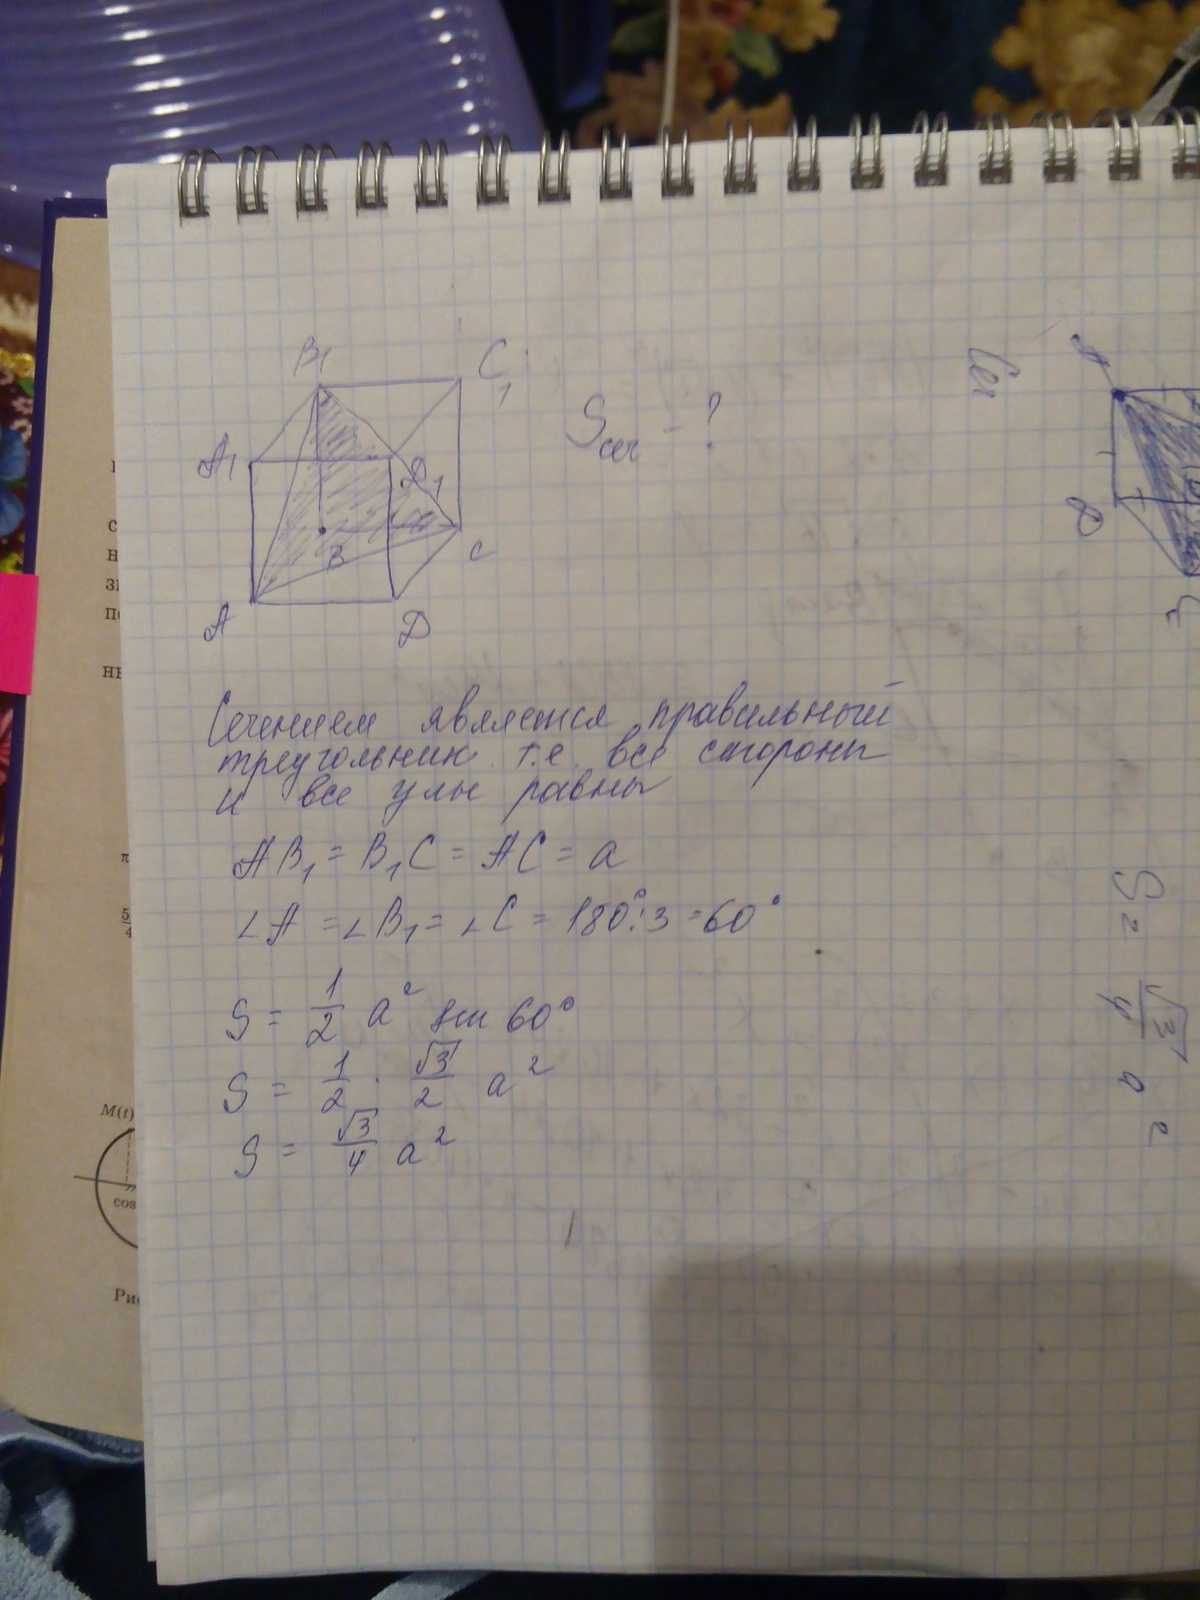 B₁
C₁
A₁
D₁
B
C
A
D
Sсеч - ?
Сечением является правильный
треугольник т.е. все стороны
и все углы равны
AB₁ = B₁C = AC = a
∠A = ∠B₁ = ∠C = 180°:3 = 60°
S = 1/2 a² sin 60°
S = 1/2 · √3/2 a²
S = √3/4 a²
Сеч
D
S = √3/4 a²
M(t)
cos
5/4
Рис